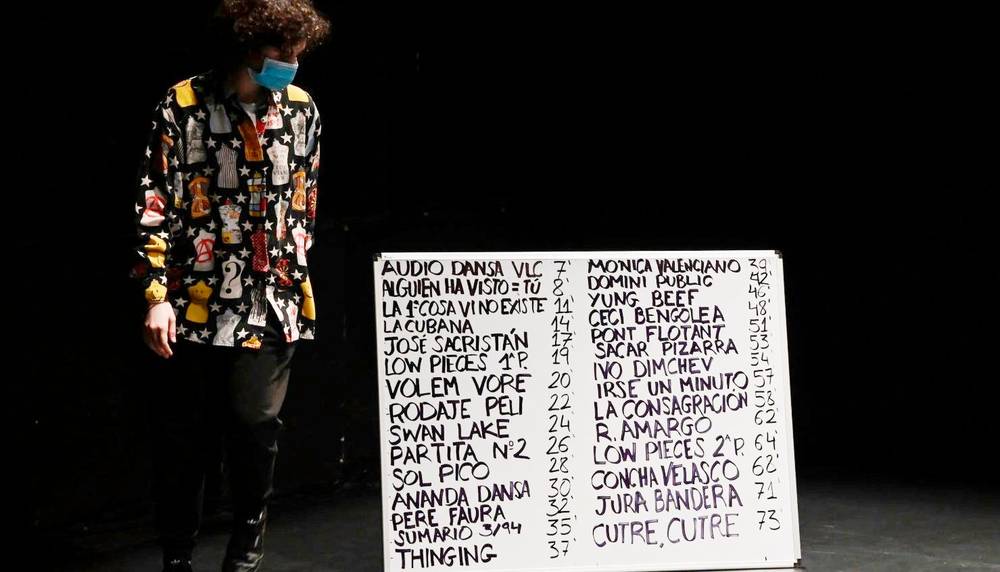 AUDIO DANSA VLC 7'
ALGUIEN HA VISTO = TÚ 8'
LA 1ª COSA VI NO EXISTE 11'
LA CUBANA 14'
JOSÉ SACRISTÁN 17'
LOW PIECES 1ª P. 19'
VOLEM VORE 20'
RODAJE PELI 22'
SWAN LAKE 24'
PARTITA Nº2 26'
SOL PICO 28'
ANANDA DANSA 30'
PERE FAURA 32'
SUMARIO 3/94 35'
THINGING 37'
MONICA VALENCIANO 39'
DOMINI PUBLIC 42'
YUNG BEEF 46'
CECI BENGOLEA 48'
PONT FLOTANT 51'
SACAR PIZARRA 53'
IVO DIMCHEV 54'
IRSE UN MINUTO 57'
LA CONSAGRACIÓN 58'
R. AMARGO 62'
LOW PIECES 2ª P. 64'
CONCHA VELASCO 62'
JURA BANDERA 71'
CUTRE, CUTRE 73'